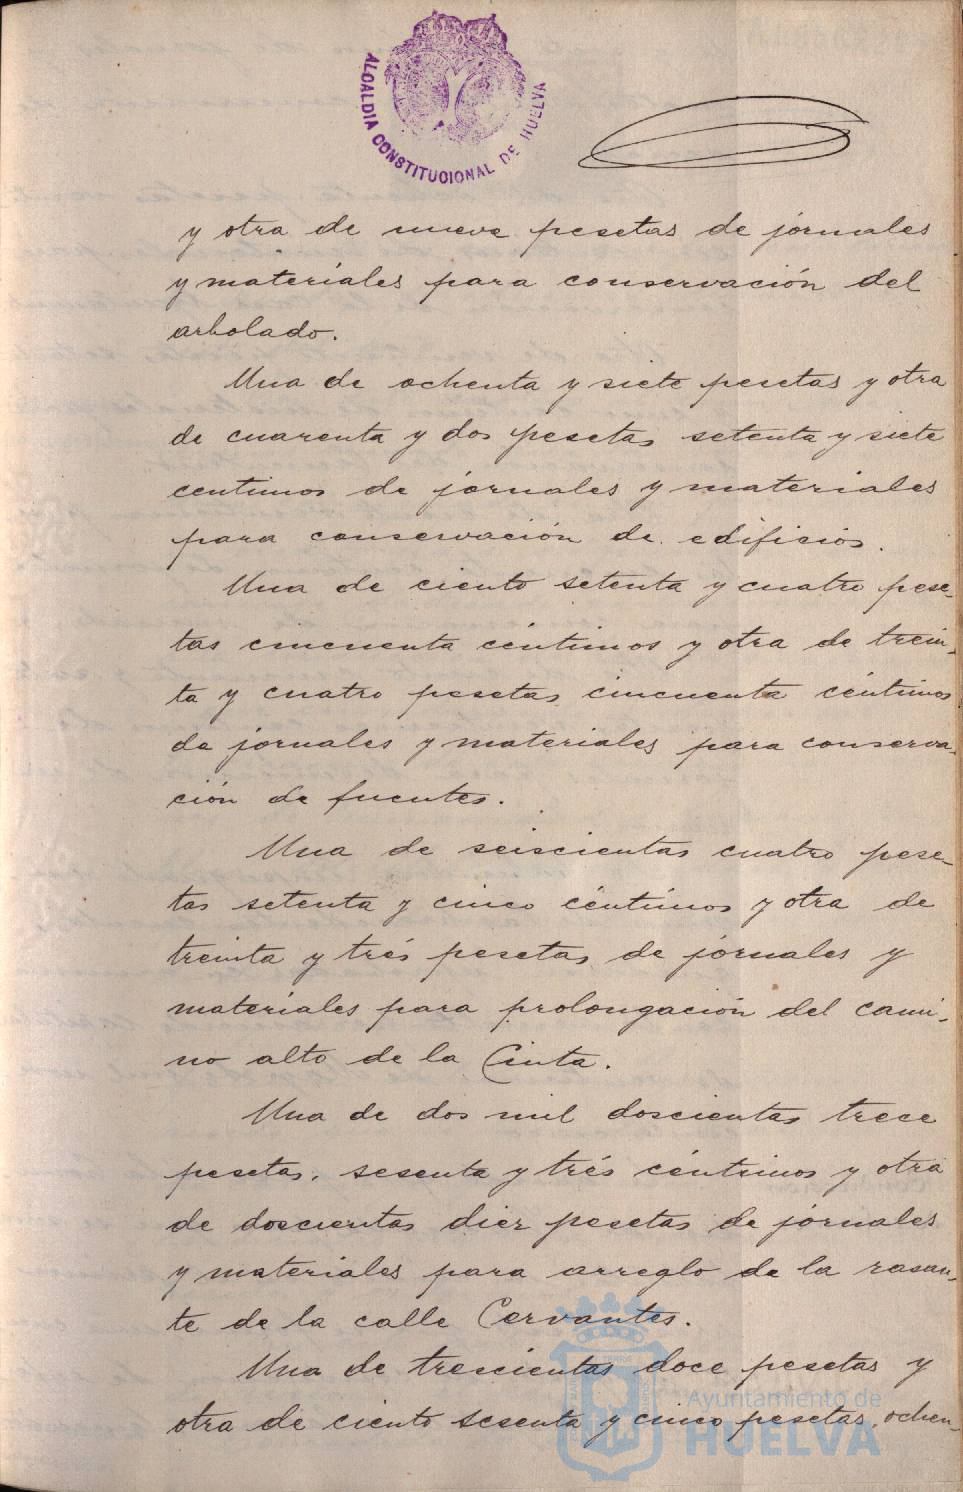 ALCALDIA CONSTITUCIONAL DE HUELVA
y otra de nueve pesetas de jornales
y materiales para conservación del
arbolado.
Una de ochenta y siete pesetas y otra
de cuarenta y dos pesetas setenta y siete
centimos de jornales y materiales
para conservación de edifisios.
Una de ciento setenta y cuatro pese-
tas cincuenta céntimos y otra de trein-
ta y cuatro pesetas cincuenta céntimos
de jornales y materiales para conserva-
ción de fuentes.
Una de seiscientas cuatro pese-
tas setenta y cinco céntimos y otra de
treinta y trés pesetas de jornales y
materiales para prolongación del cami-
no alto de la Cinta.
Una de dos mil doscientas trece
pesetas, sesenta y trés céntimos y otra
de doscientas diez pesetas de jornales
y materiales para arreglo de la rasan-
te de la calle Cervantes.
Una de trescientas doce pesetas y
otra de ciento sesenta y cinco pesetas, ochen-
Ayuntamiento de
HUELVA